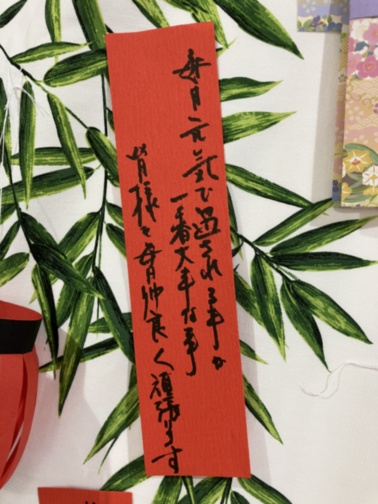 毎日元気で過される事が
一番大事な事
皆様と毎日仲良く頑張ります